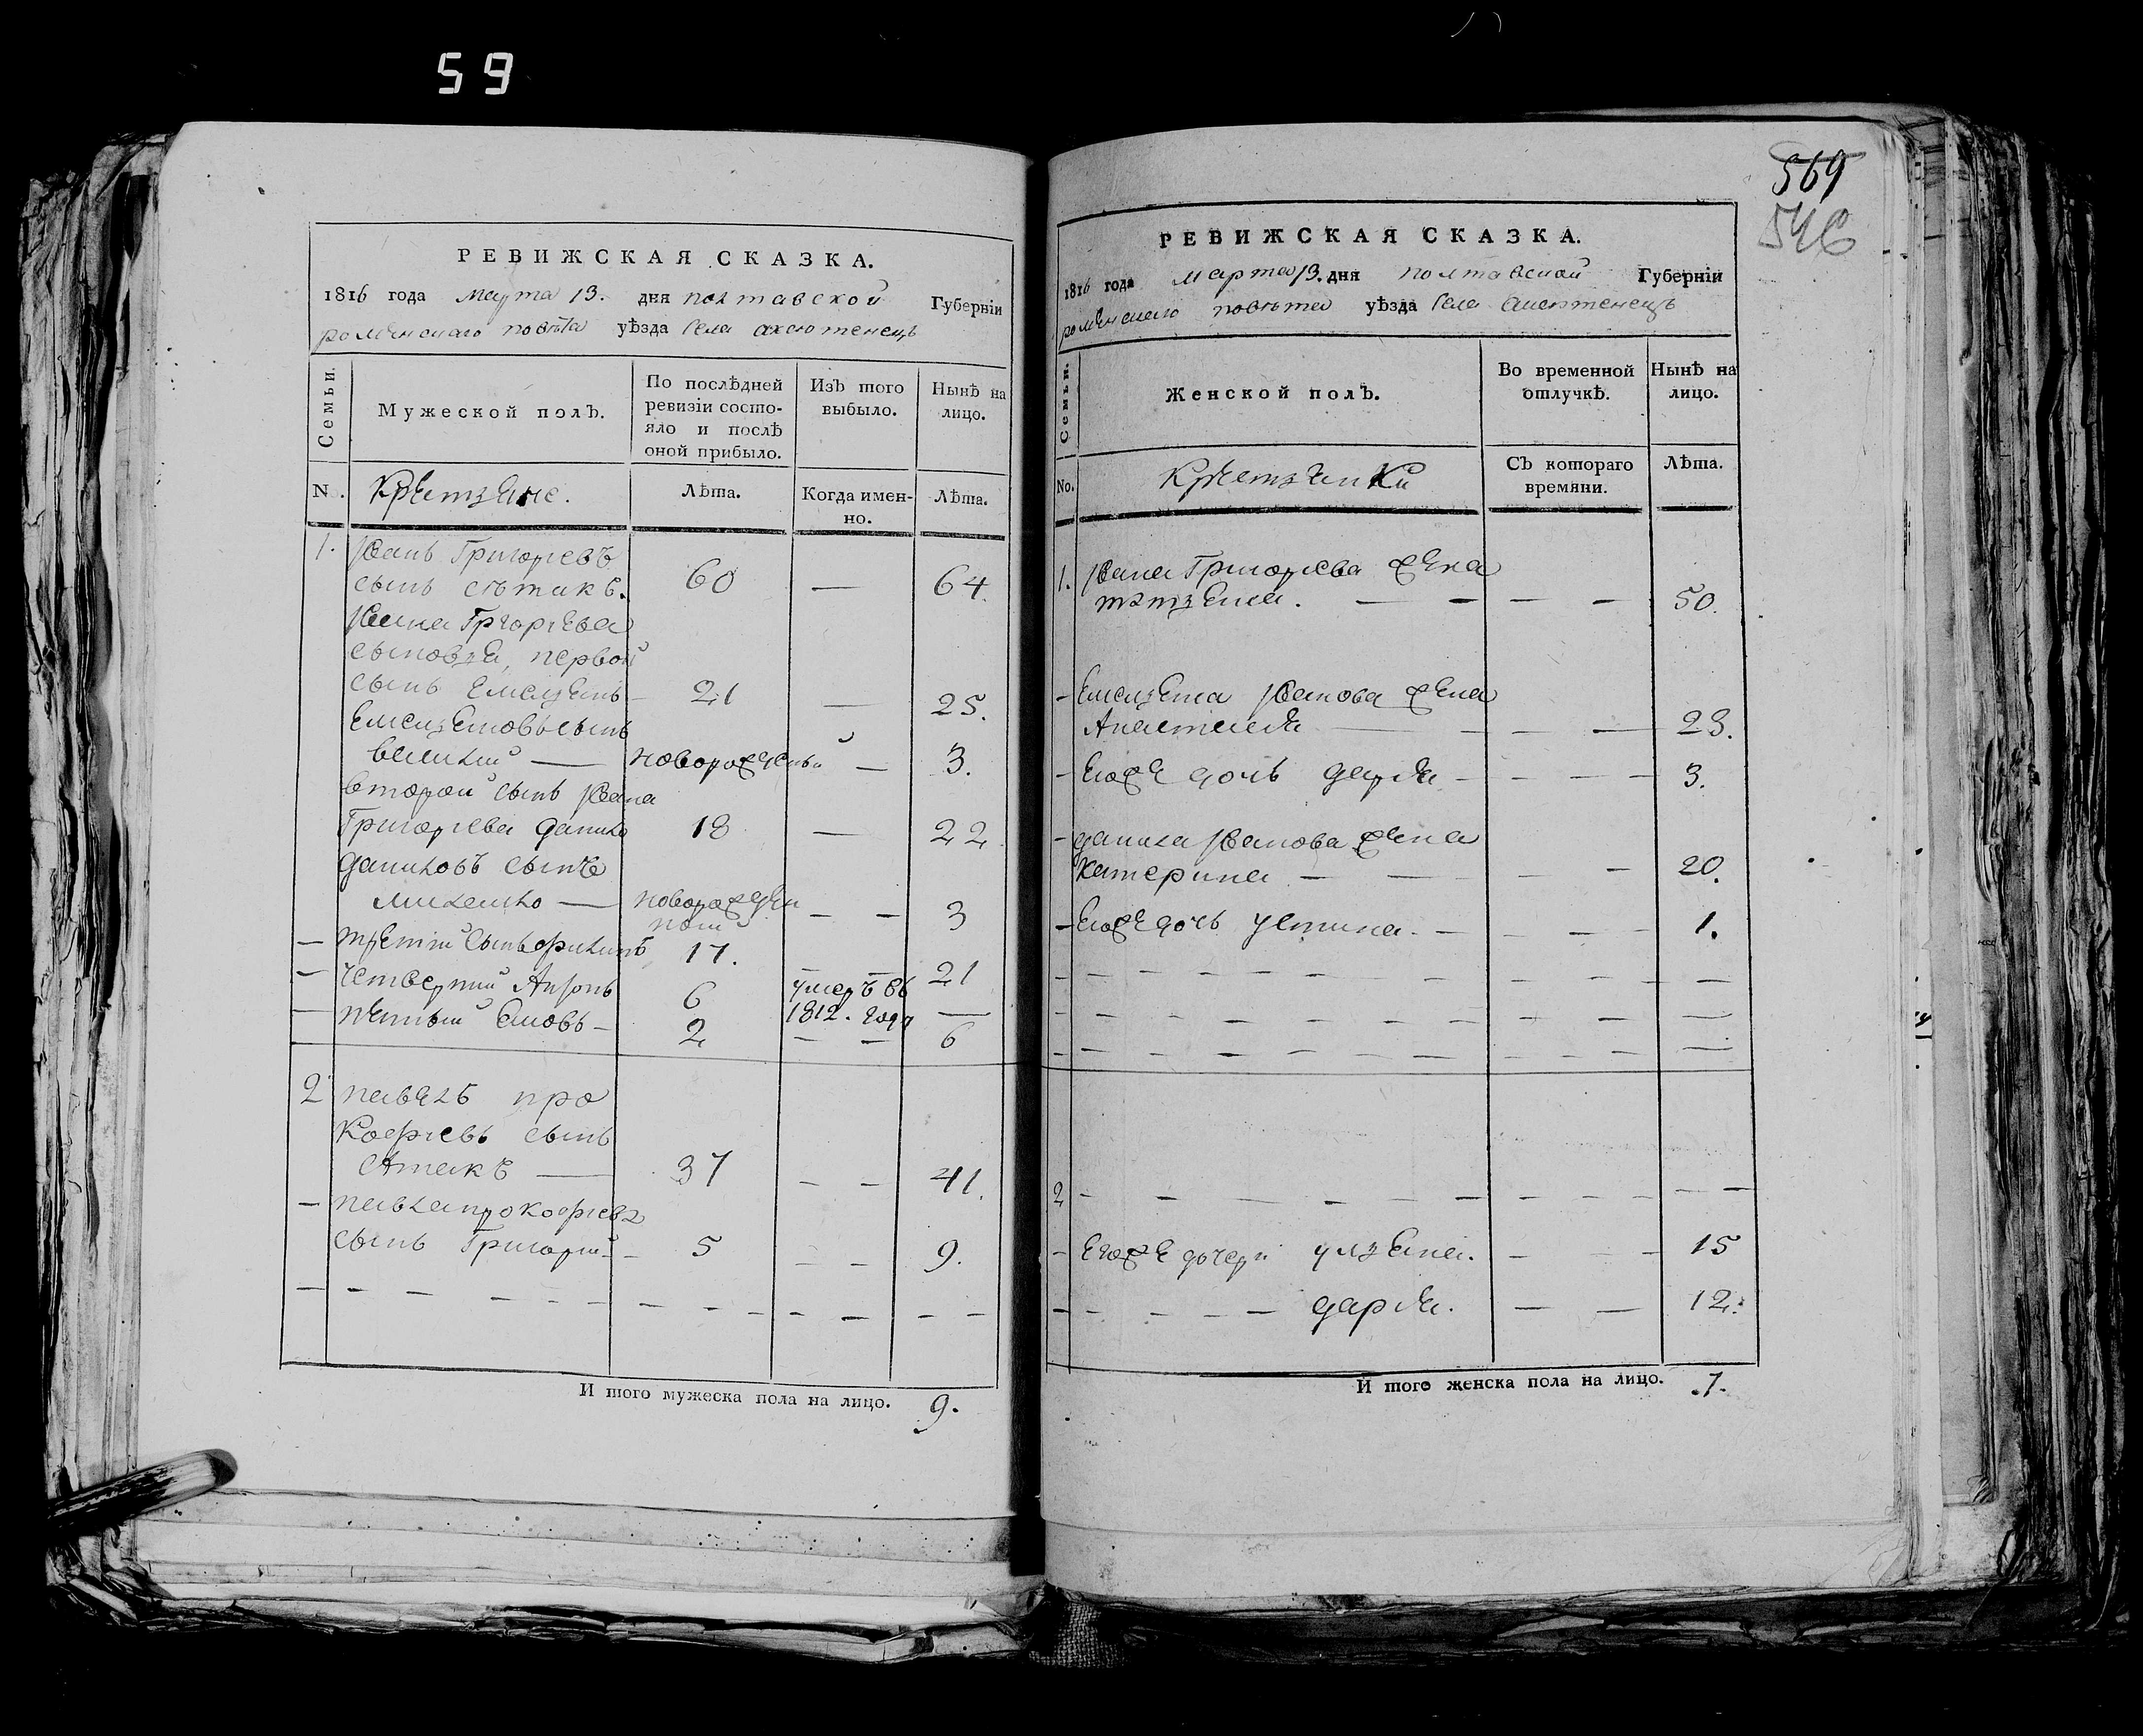 59
РЕВИЖСКАЯ СКАЗКА.
1816 года марта 13. дня полтавской Губерніи
роменскаго повѣта уѣзда села аксютенецъ
Семьи.
Мужеской полъ.
По послѣдней
ревизіи состо-
яло и послѣ
оной прибыло.
Изъ того
выбыло.
Нынѣ на
лицо.
N.
Лѣта.
Когда имен-
но.
Лѣта.
1. Іванъ Григоріевъ
сынъ 60 — 64.
Івана Григоріева
сыновья, первой
сынъ Емельянъ 21 — 25.
Емельяновъ сынъ
новорожденый — 3.
второй сынъ Івана
Григоріева данило 18 — 22
даниловъ сынъ
михайло — новорожден
ной — — 3
— третій сынъ филипъ 17. 21
— четвертий Антонъ 6 умеръ въ
1812. году —
— пятый Яковъ — 2 — — 6
2 павелъ про
кофіевъ сынъ
— 37 — — 41.
— павла прокофіева
сынъ Григорій — 5 — — 9.
И того мужеска пола на лицо. 9.
569
546
РЕВИЖСКАЯ СКАЗКА.
1816 года марта 13. дня полтавской Губерніи
роменскаго повѣта уѣзда села аксютенецъ
Семьи.
Женской полъ.
Во временной
отлучкѣ.
Нынѣ на
лицо.
No.
Съ котораго
времяни.
Лѣта.
1. Івана Григоріева жена
татзяна. — — — — 50.
— Емельяна Іванова жена
Анастасія — — — 23.
— Егоже дочь дарія — — — — 3.
— данила Іванова жена
катерина — — — — 20.
— Егоже дочь устина. — — — — 1.
2 — — — — — — — — — —
— Егоже дочери улзяна. — — — 15
— — — — — дарія. — — 12.
И того женска пола на лицо. .7.